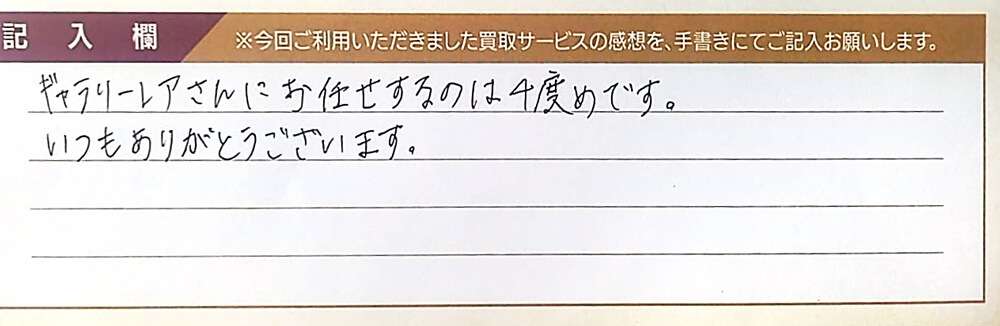 記入欄
※今回ご利用いただきました買取サービスの感想を、手書きにてご記入お願いします。
ギャラリーレアさんにお任せするのは4度めです。
いつもありがとうございます。